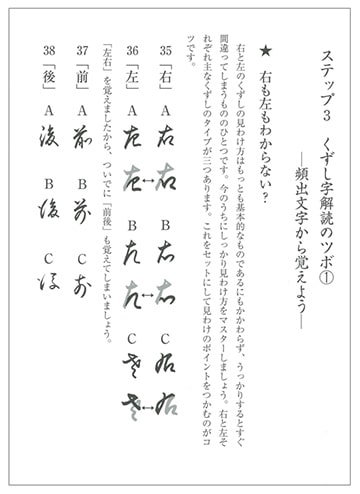 ステップ3 くずし字解読のツボ①
―頻出文字から覚えよう―
★ 右も左もわからない?
右と左のくずしの見わけ方はもっとも基本的なものであるにもかかわらず、うっかりするとすぐ
間違ってしまうもののひとつです。今のうちにしっかり見わけ方をマスターしましょう。右と左そ
れぞれ主なくずしのタイプが三つあります。これをセットにして見わけのポイントをつかむのがコ
ツです。
35「右」 A 右 右 B 右 右 C 右 右
↔ ↔ ↔
36「左」 A 左 左 B 左 左 C 左 左
「左右」を覚えましたから、ついでに「前後」も覚えてしまいましょう。
37「前」 A 前 B 前 C 前
38「後」 A 後 B 後 C 後